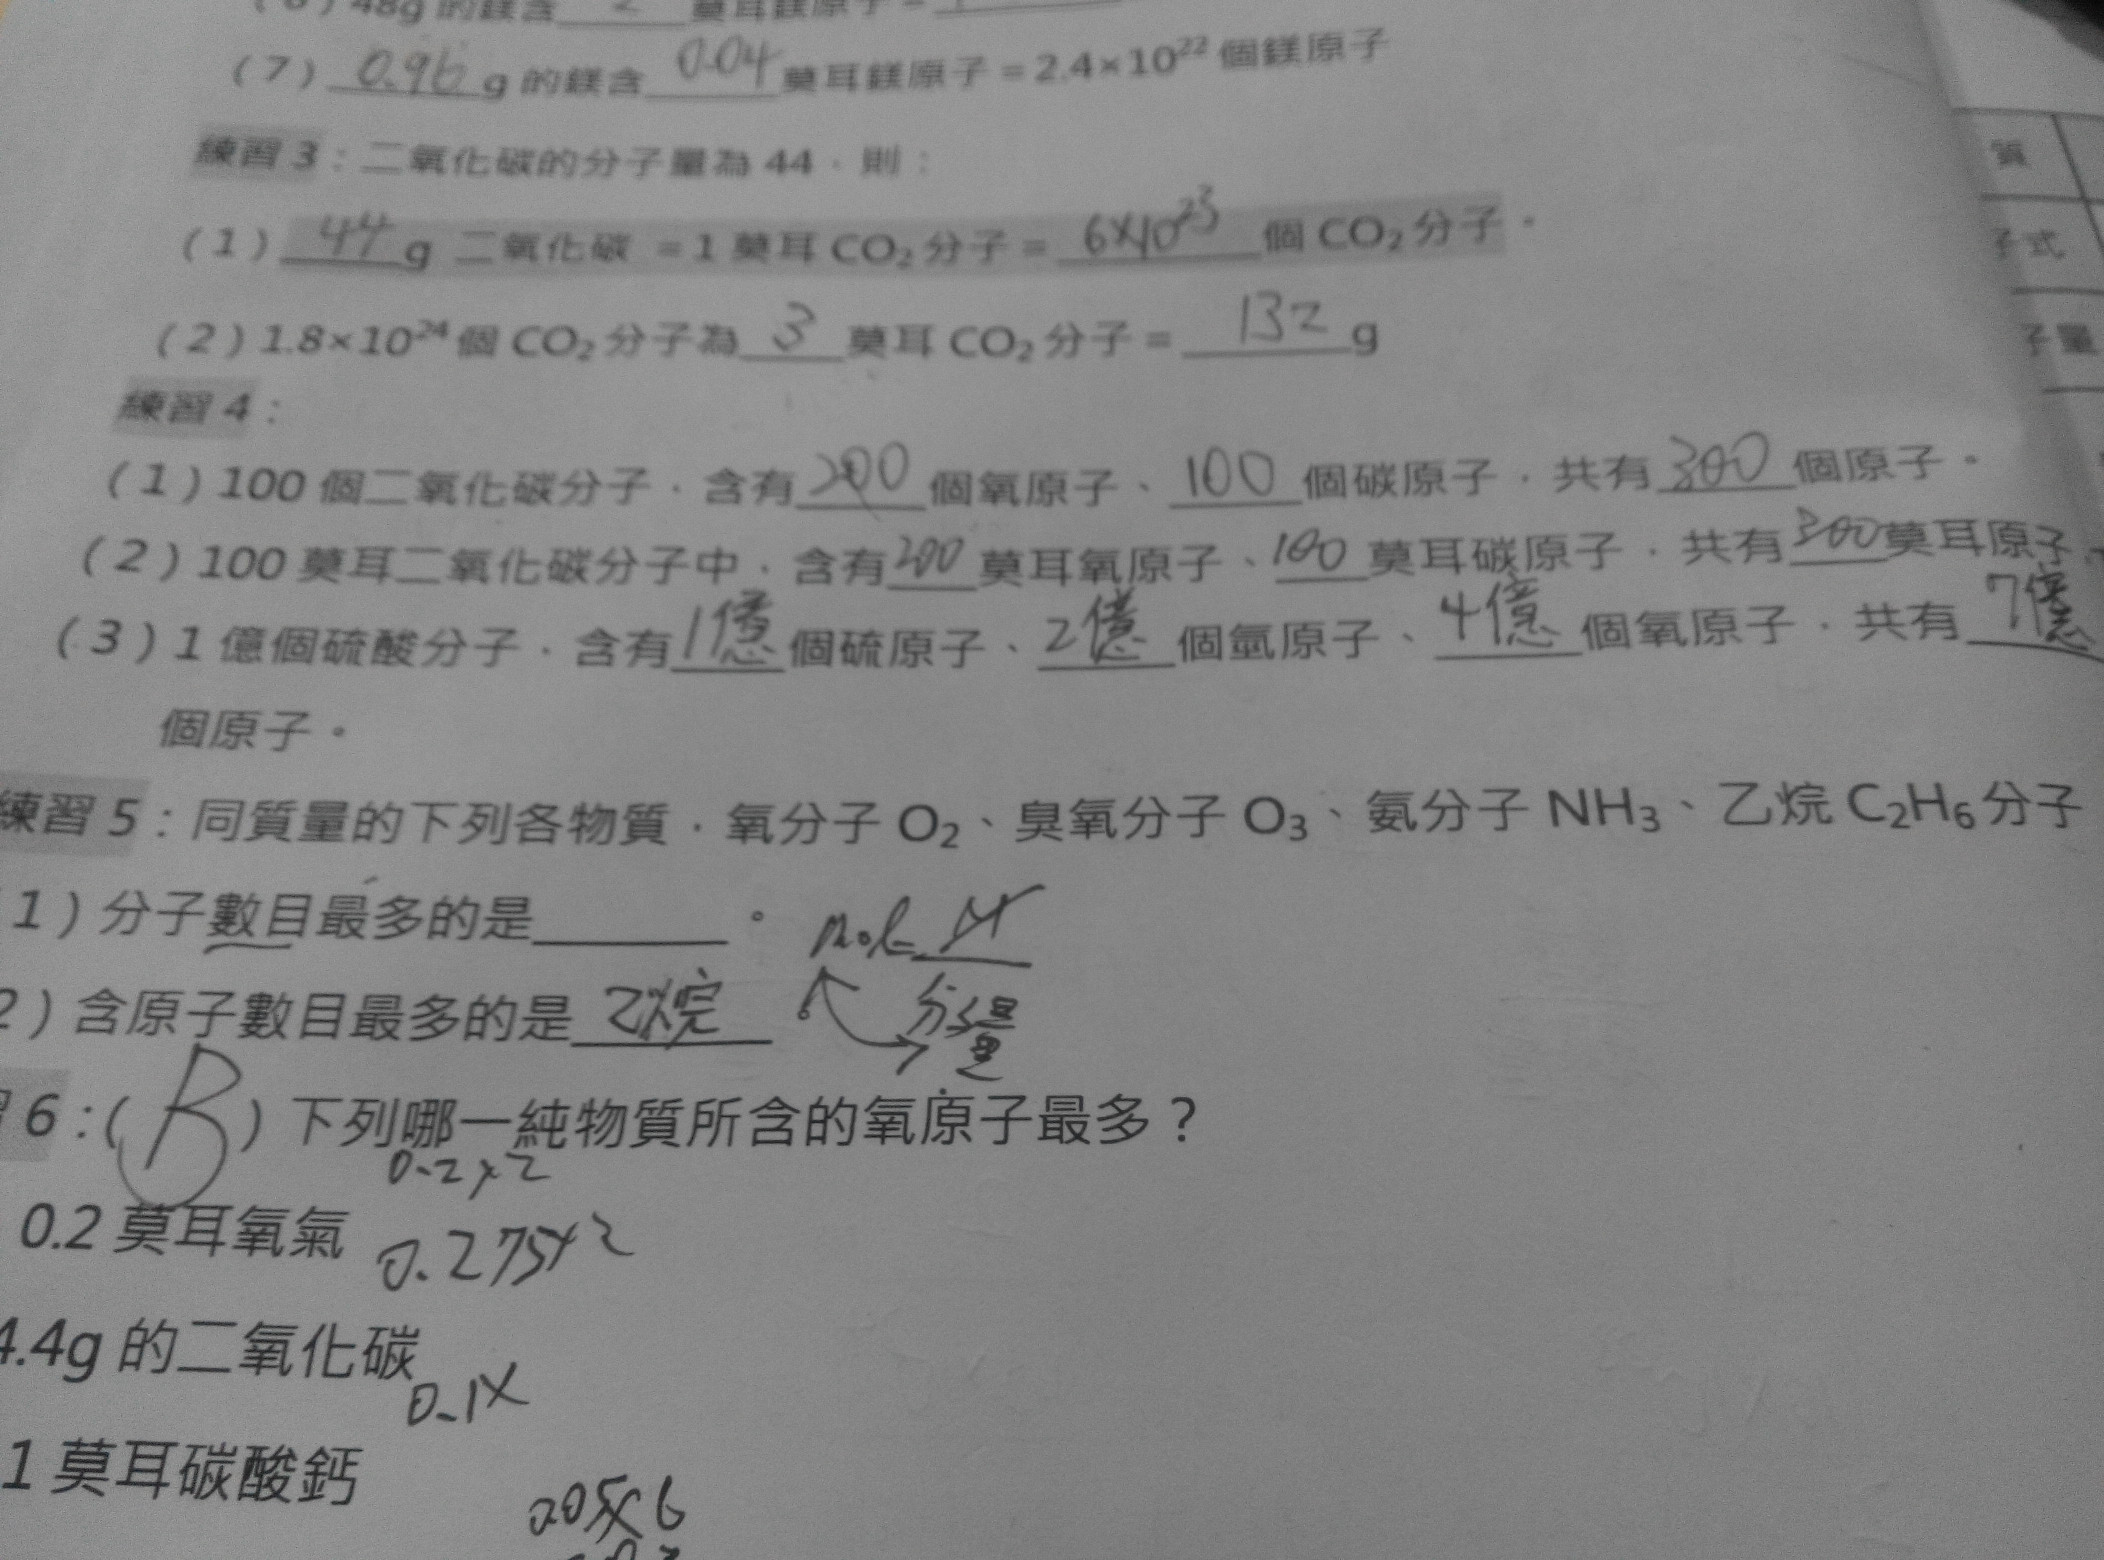 (6) 48g 的鎂含 2 莫耳鎂原子 =
(7) 0.96 g 的鎂含 0.04 莫耳鎂原子 = 2.4×10²² 個鎂原子
練習 3：二氧化碳的分子量為 44，則：
(1) 44 g 二氧化碳 = 1 莫耳 CO₂ 分子 = 6×10²³ 個 CO₂ 分子。
(2) 1.8×10²⁴ 個 CO₂ 分子為 3 莫耳 CO₂ 分子 = 132 g
練習 4：
(1) 100 個二氧化碳分子，含有 200 個氧原子、100 個碳原子，共有 300 個原子。
(2) 100 莫耳二氧化碳分子中，含有 200 莫耳氧原子、100 莫耳碳原子，共有 300 莫耳原子
(3) 1 億個硫酸分子，含有 1億 個硫原子、2億 個氫原子、4億 個氧原子，共有 7億
個原子。
練習 5：同質量的下列各物質，氧分子 O₂、臭氧分子 O₃、氨分子 NH₃、乙烷 C₂H₆ 分子
1) 分子數目最多的是______。 mol=
2) 含原子數目最多的是 乙烷 分子量
習 6：( B ) 下列哪一純物質所含的氧原子最多？
0.2×2
0.2 莫耳氧氣 0.275×2
4.4g 的二氧化碳
0.1×
1 莫耳碳酸鈣
0.05×6
質
子式
子量